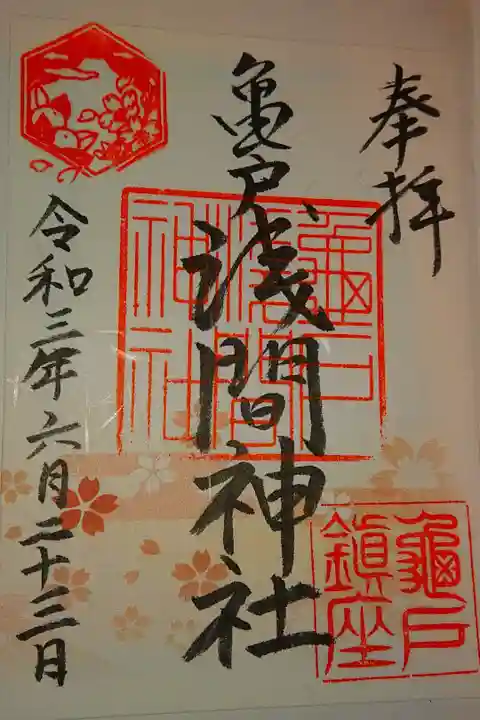 奉拝
亀戸浅間神社
令和三年六月二十三日
龜戸浅間神社
龜戸鎮座